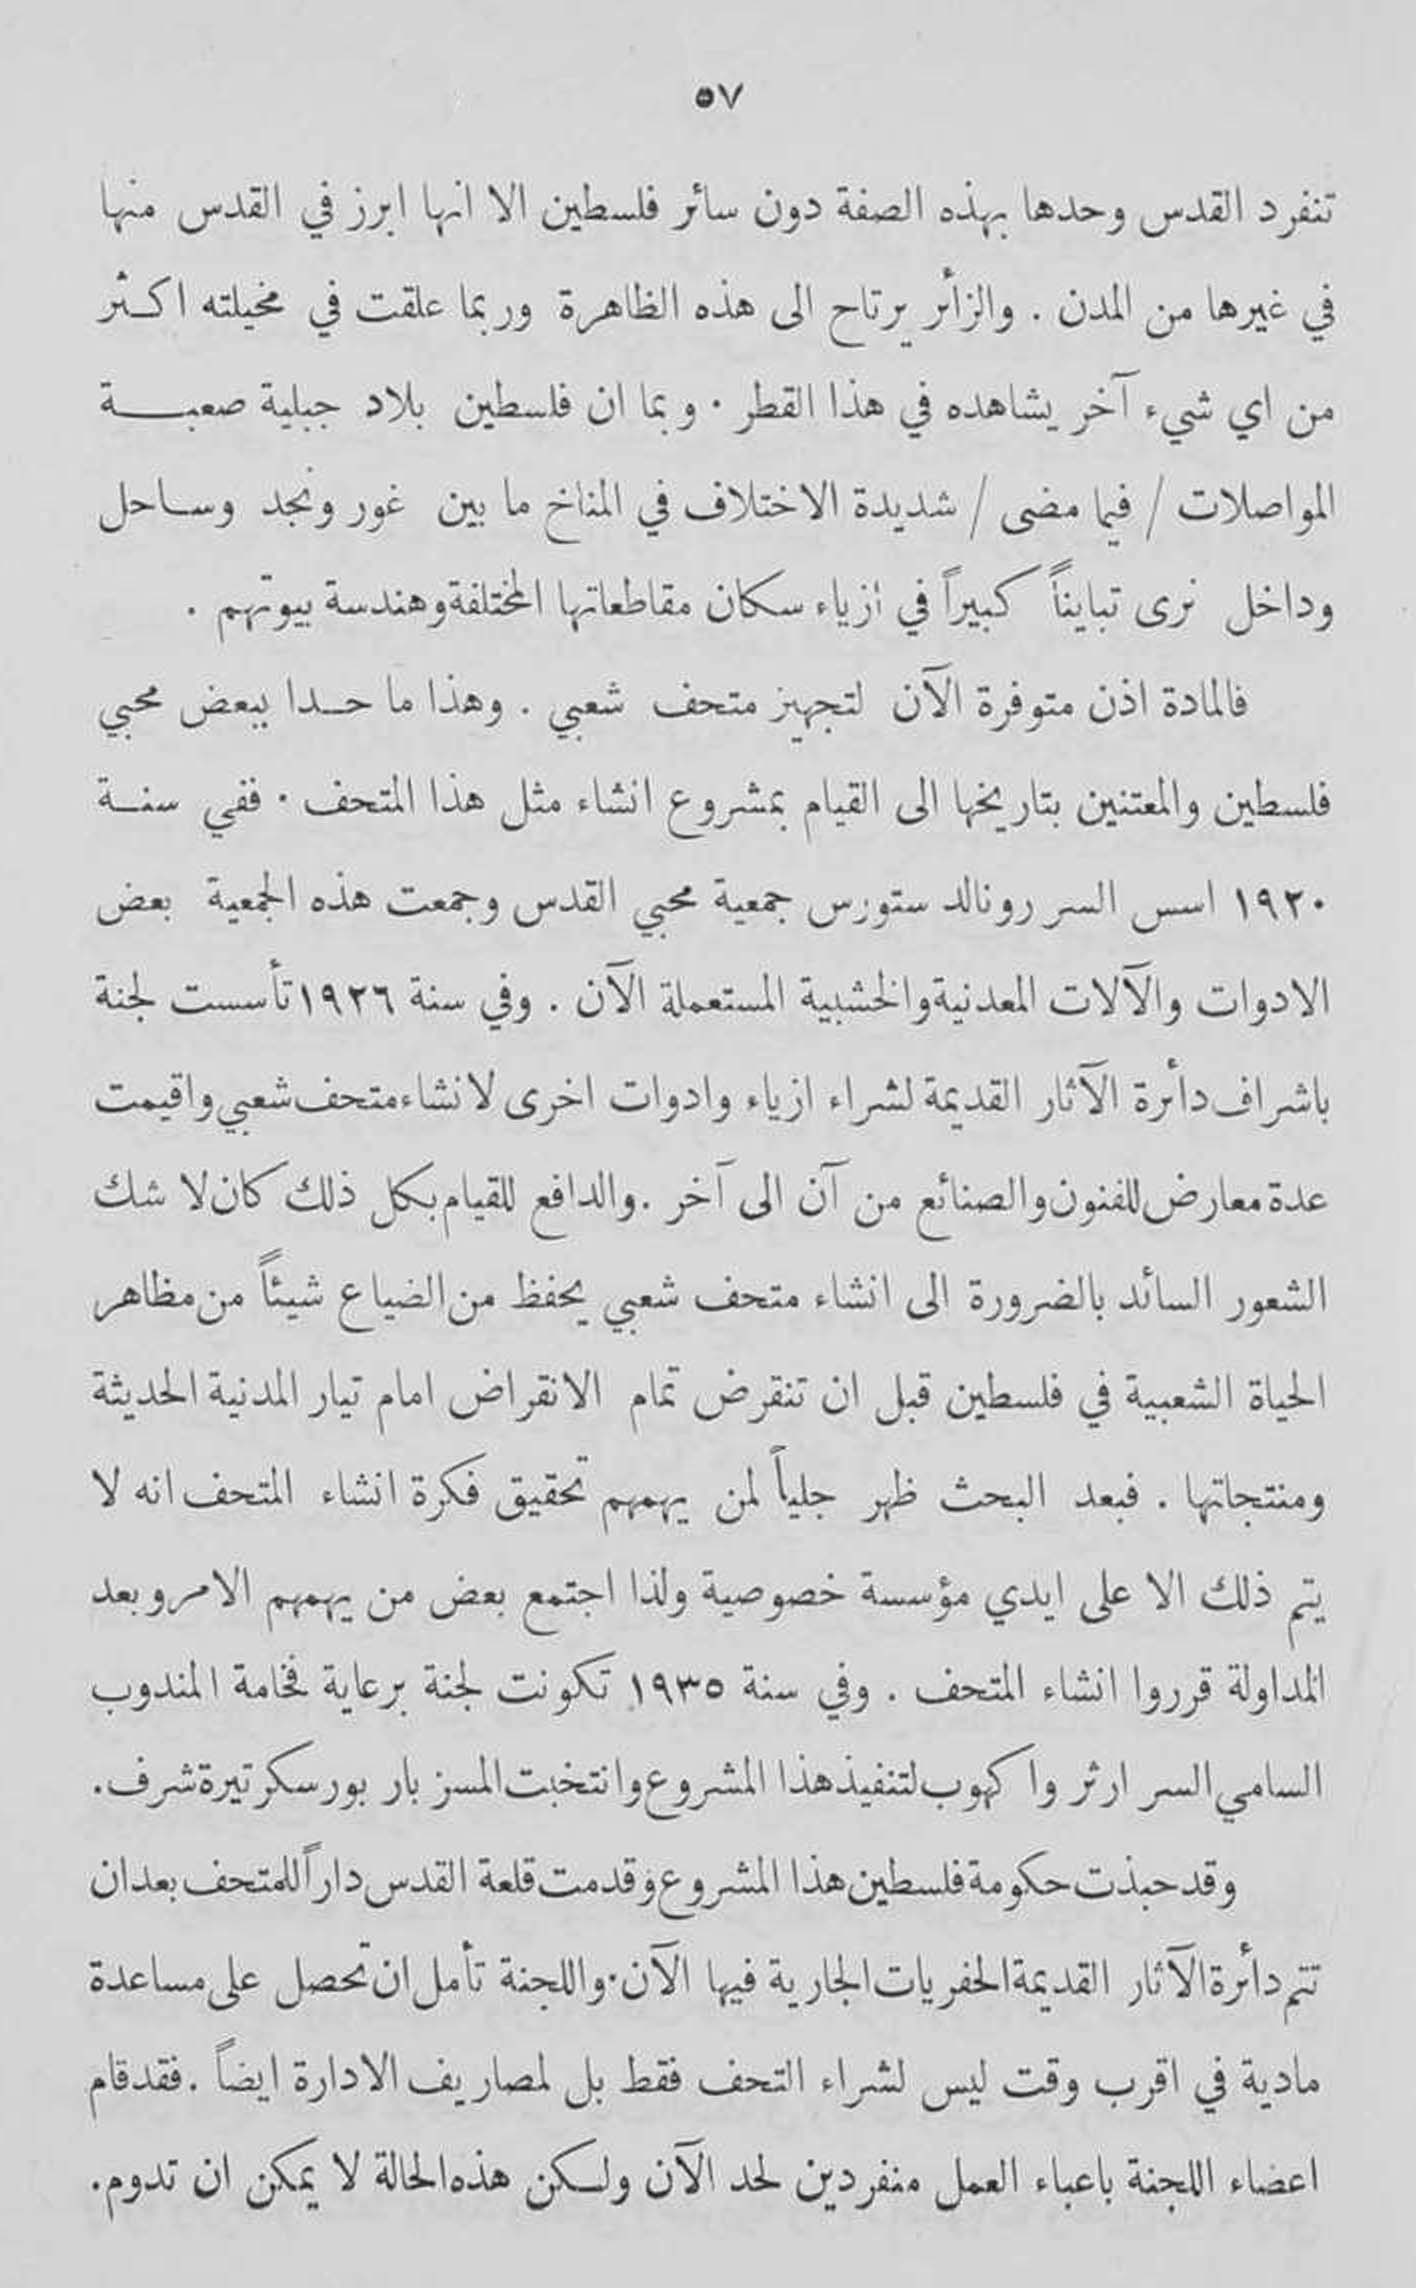 ٥٧
تنفرد القدس وحدها بهذه الصفة دون سائر فلسطين الا انها ابرز في القدس منها
في غيرها من المدن . والزائر يرتاح الى هذه الظاهرة وربما علقت في مخيلته اكثر
من اي شيء آخر يشاهده في هذا القطر . وبما ان فلسطين بلاد جبلية صعبة
المواصلات / فيما مضى / شديدة الاختلاف في المناخ ما بين غور ونجد وساحل
وداخل نرى تبايناً كبيراً في ازياء سكان مقاطعاتها المختلفة وهندسة بيوتهم .
فالمادة اذن متوفرة الآن لتجهيز متحف شعبي . وهذا ما حدا ببعض محبي
فلسطين والمعتنين بتاريخها الى القيام بمشروع انشاء مثل هذا المتحف . ففي سنة
١٩٢٠ اسس السر رونالد ستورس جمعية محبي القدس وجمعت هذه الجمعية بعض
الادوات والآلات المعدنية والخشبية المستعملة الآن . وفي سنة ١٩٢٦ تأسست لجنة
باشراف دائرة الآثار القديمة لشراء ازياء وادوات اخرى لانشاء متحف شعبي واقيمت
عدة معارض للفنون والصنائع من آن الى آخر . والدافع للقيام بكل ذلك كان لا شك
الشعور السائد بالضرورة الى انشاء متحف شعبي يحفظ من الضياع شيئاً من مظاهر
الحياة الشعبية في فلسطين قبل ان تنقرض تمام الانقراض امام تيار المدنية الحديثة
ومنتجاتها . فبعد البحث ظهر جلياً لمن يهمهم تحقيق فكرة انشاء المتحف انه لا
يتم ذلك الا على ايدي مؤسسة خصوصية ولذا اجتمع بعض من يهمهم الامر وبعد
المداولة قرروا انشاء المتحف . وفي سنة ١٩٣٥ تكونت لجنة برعاية فخامة المندوب
السامي السر ارثر واكهوب لتنفيذ هذا المشروع وانتخبت المسز بار بور سكرتيرة شرف .
وقد حبذت حكومة فلسطين هذا المشروع وقدمت قلعة القدس داراً للمتحف بعد ان
تتم دائرة الآثار القديمة الحفريات الجارية فيها الآن . واللجنة تأمل ان تحصل على مساعدة
مادية في اقرب وقت ليس لشراء التحف فقط بل لمصاريف الادارة ايضاً . فقد قام
اعضاء اللجنة باعباء العمل منفردين لحد الآن ولكن هذه الحالة لا يمكن ان تدوم .